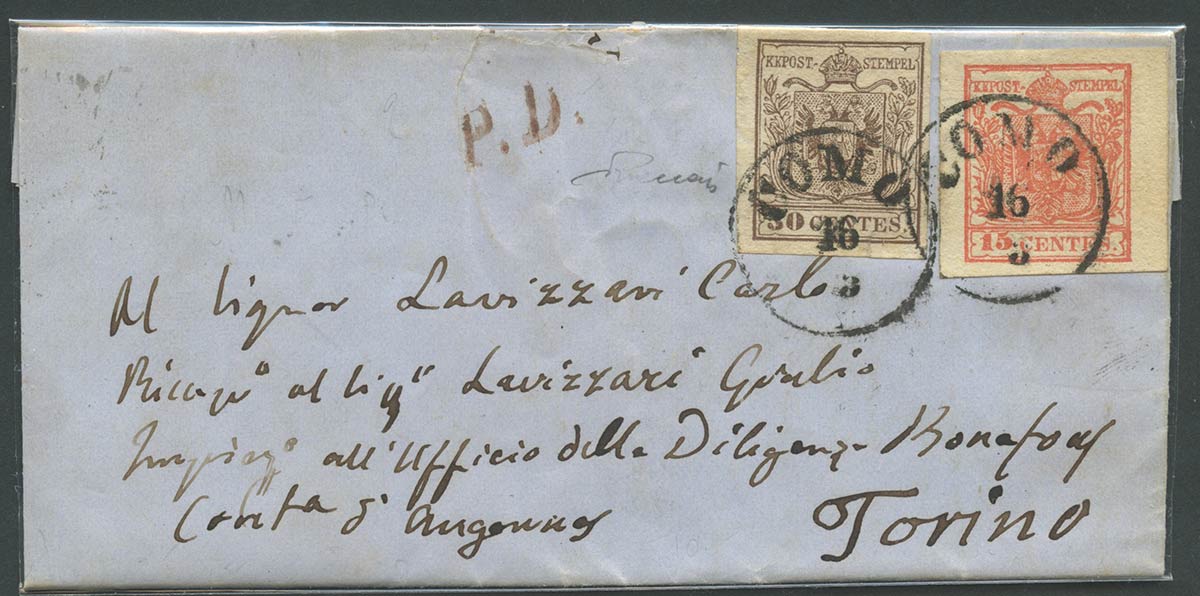 P.D.
KKPOST-STEMPEL
30 CENTES.
COMO
16
3
KKPOST-STEMPEL
15 CENTES.
COMO
16
3
Al Signor Lavizzari Carlo
Ricapo al Sigr Lavizzari Giulio
all'Ufficio della Diligenza Bonafous
Contta d'Angennes
Torino